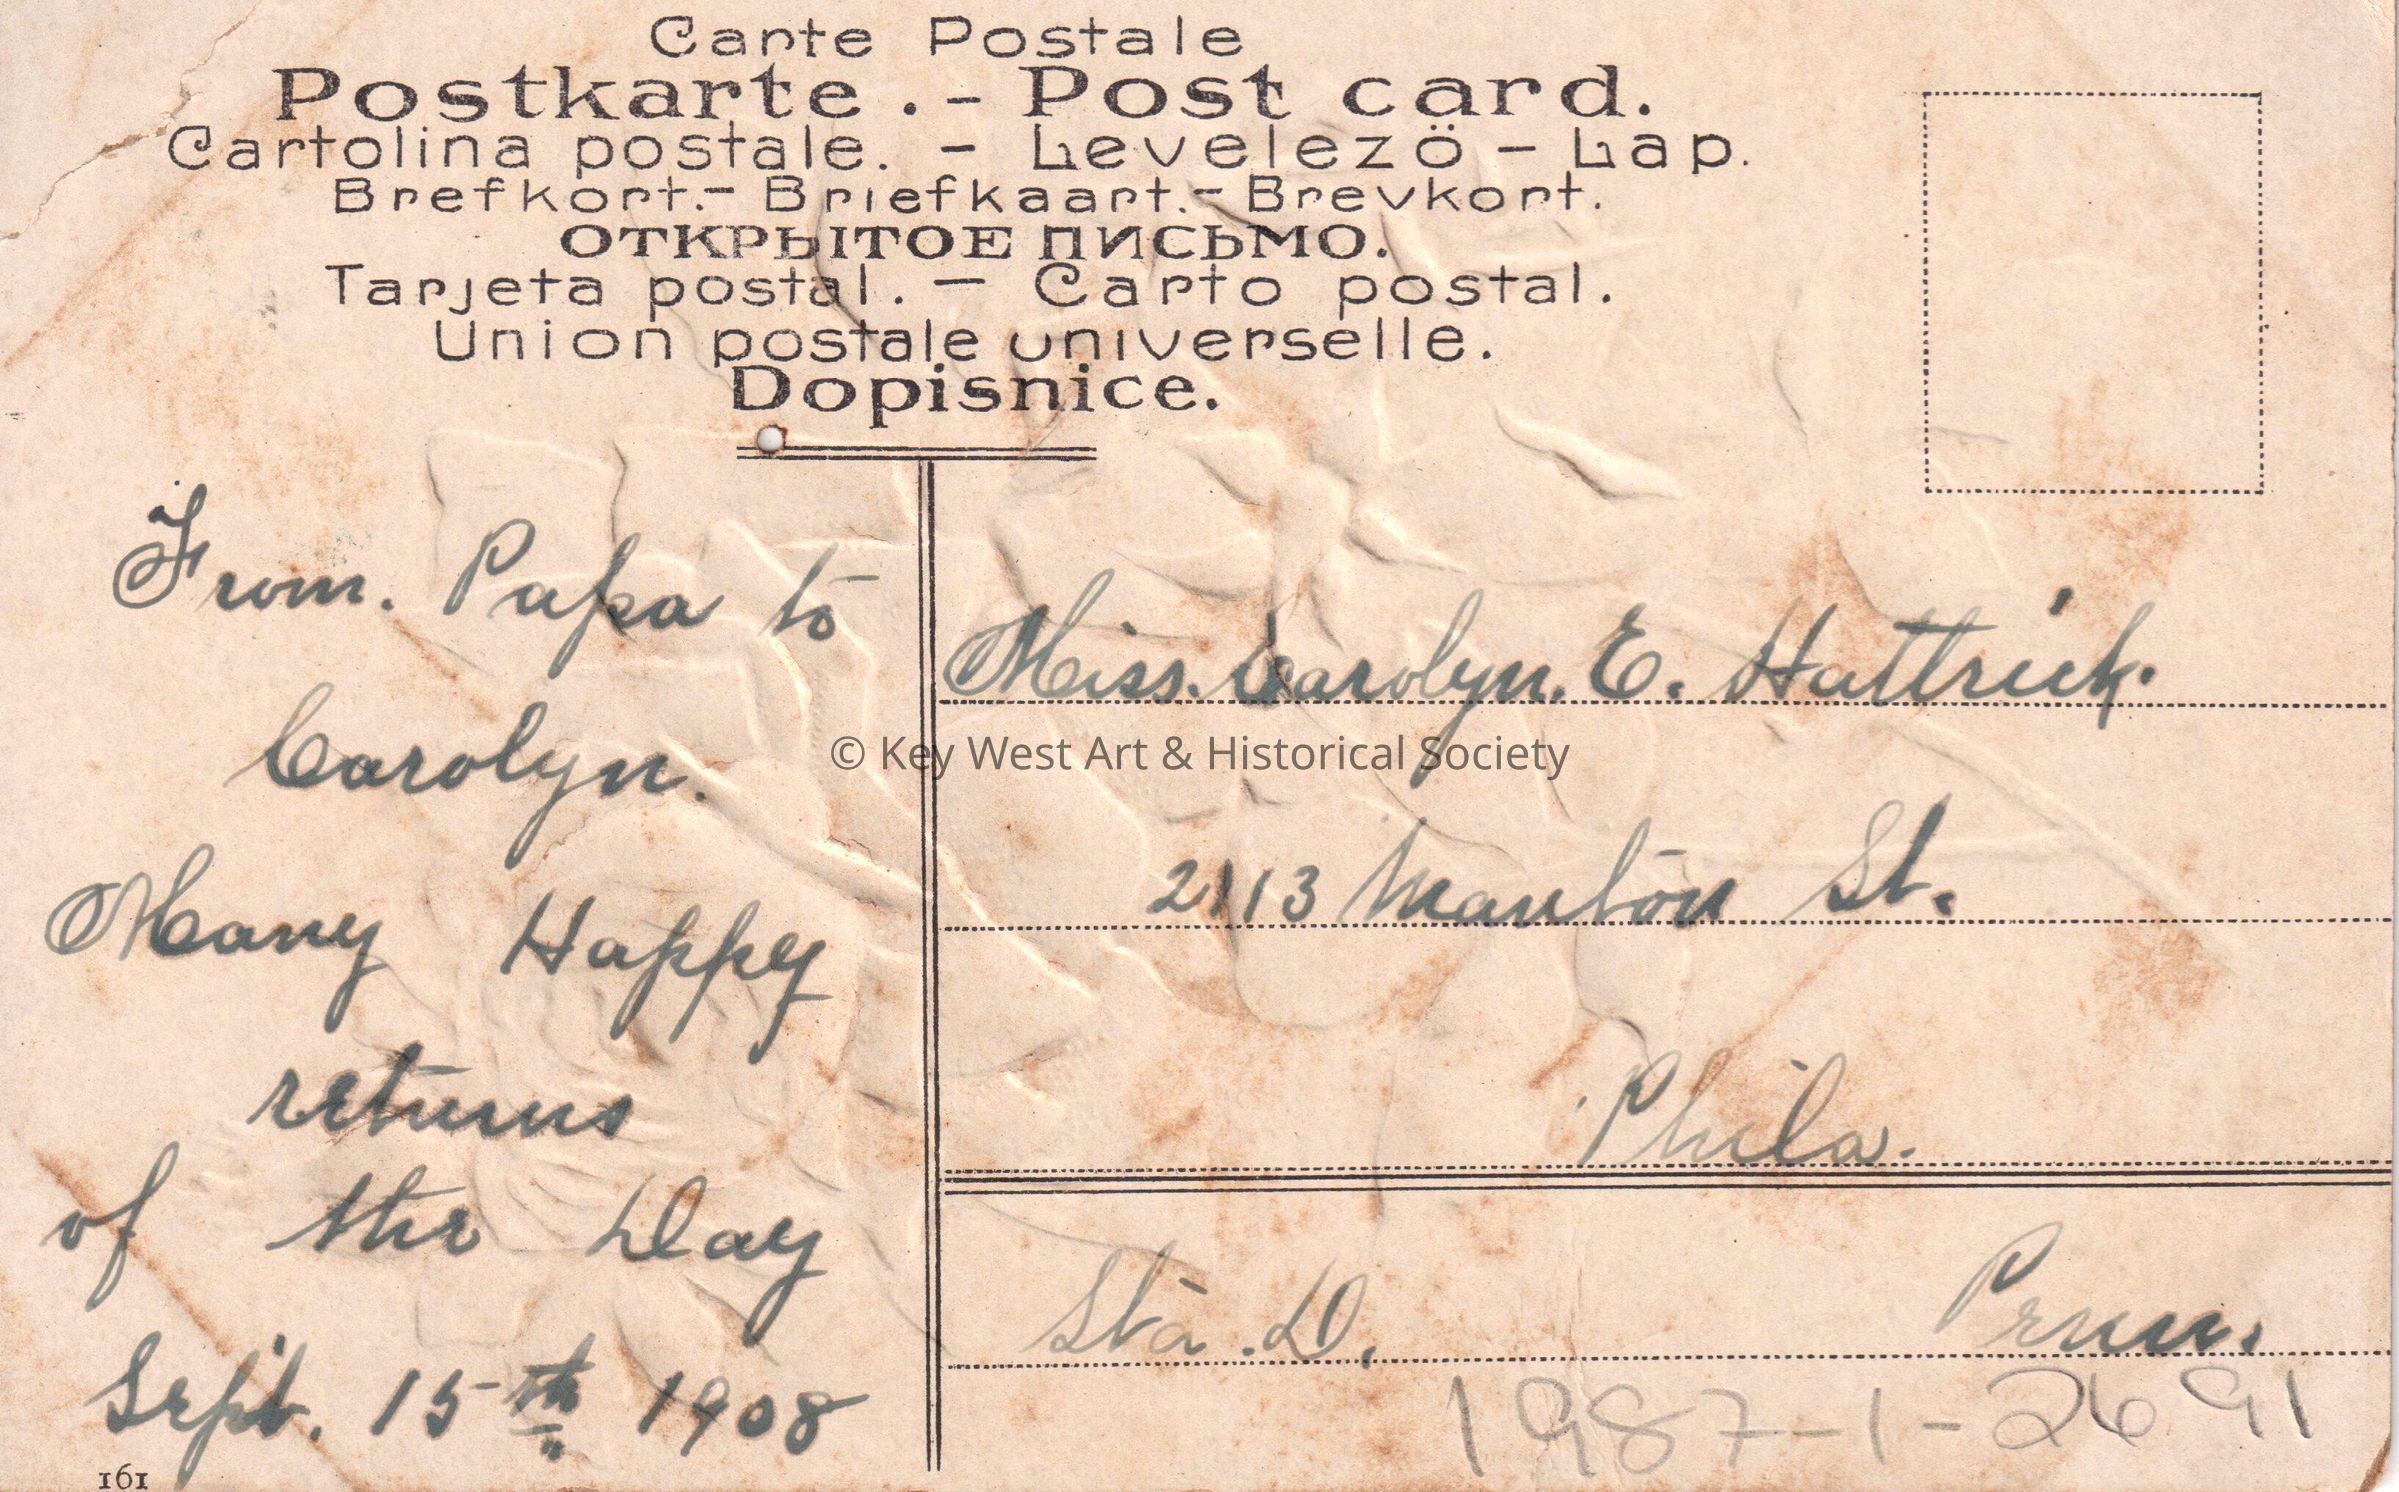 Carte Postale
Postkarte. - Post card.
Cartolina postale. - Levelezö - Lap.
Brefkort. - Briefkaart. - Brevkort.
ОТКРЫТОЕ ПИСЬМО.
Tarjeta postal. - Carto postal.
Union postale universelle.
Dopisnice.
From. Papa to
Carolyn.
Many Happy
returns
of the Day
Sept. 15th 1908
161
Miss. Carolyn. E. Hattrick.
© Key West Art & Historical Society
2113 Manton St.
Phila.
Sta. D. Penn.
1987-1-2691